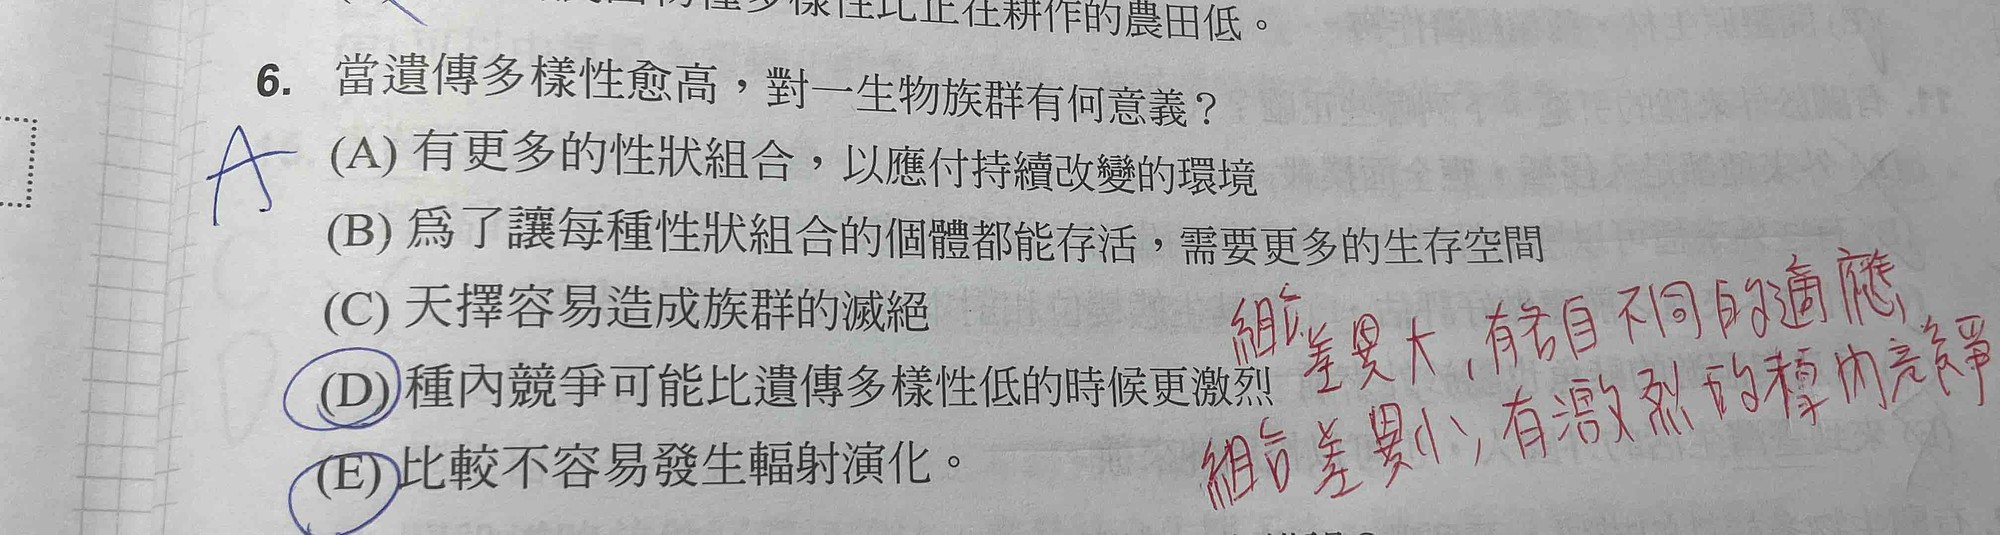 種多樣性比正在耕作的農田低。
6. 當遺傳多樣性愈高，對一生物族群有何意義？
A
(A) 有更多的性狀組合，以應付持續改變的環境
(B) 為了讓每種性狀組合的個體都能存活，需要更多的生存空間
(C) 天擇容易造成族群的滅絕
(D) 種內競爭可能比遺傳多樣性低的時候更激烈
(E) 比較不容易發生輻射演化。
組合差異大，有各自不同的適應
組合差異小，有激烈的種內競爭